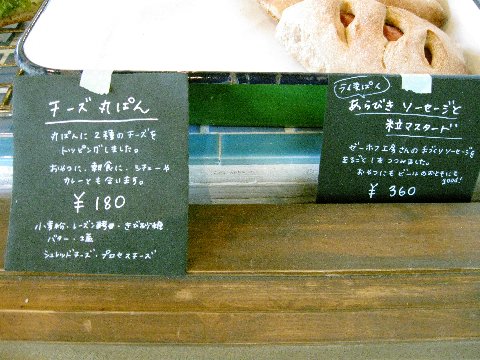 チーズ 丸ぱん
丸ぱんに 2種のチーズを
トッピングしました。
おやつに、朝食に、シチューや
カレーとも合います。
¥180
小麦粉・レーズン酵母・きび砂糖
バター・塩
シュレッドチーズ・プロセスチーズ
あらびき ソーセージと
粒マスタード
ゼーホフ工房さんの手づくりソーセージを
まるごと1本つつみました。
おやつにもビールのおともにも
good!
¥360